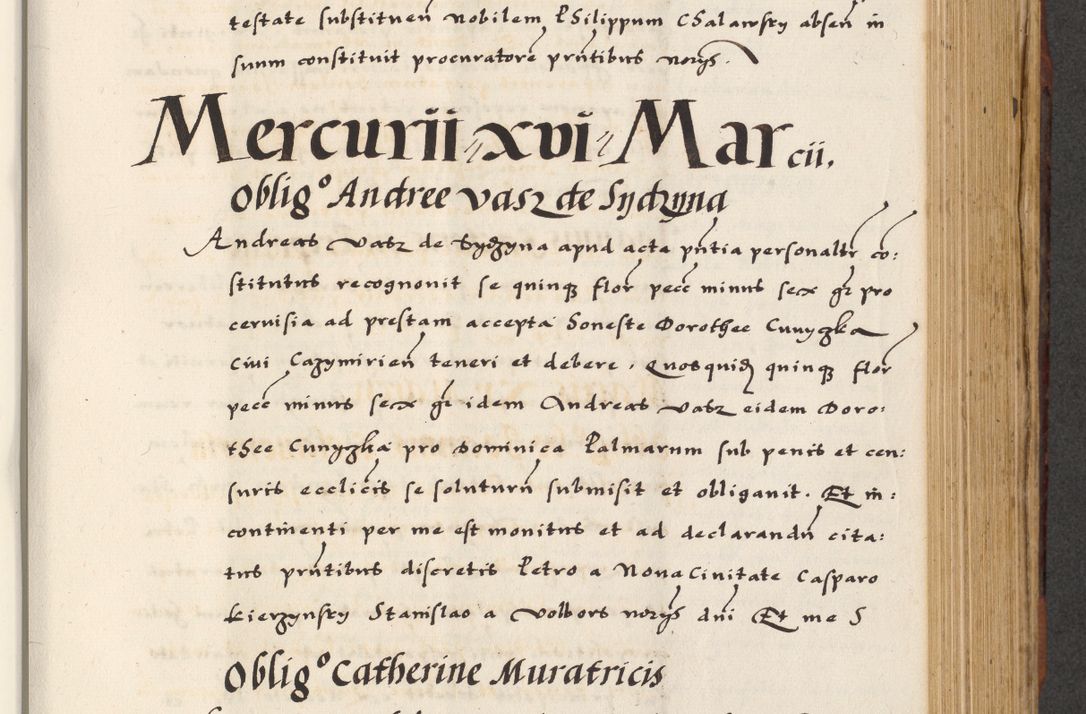 testate substituen̄ Nobilem Philippum Chalawsky absen̄ in
suum constituit procuratorē pn̄tibus norȳs.
Mercurii xvi Marcii.
Oblig° Andree Vasz de Sydzyna
Andreas Vasz de Sydzyna apud acta pn̄tia personaltr̄ co:
stitutus recognovit se quinqꝫ flor̄ pecc̄ minus sex gr̄ pro
cervisia ad prestam accepta honeste Dorothee Cunyczka
Civi Cazymirien̄ teneri et debere. Quosquidꝫ quinqꝫ flor̄
pecc̄ minus sex gr̄ idem Andreas Vasz eidem Doro:
thee Cunyczka pro Dominica Palmarum sub penis et cen:
suris ecclīcis se soluturn̄ submisit et obligavit. Et in:
continenti per me est monitus et ad declarandn̄ cita:
tus pn̄tibus discretis Petro a Nova Civitate Casparo
Kierzynsky Stanislao a Volbors norȳs dn̄i Et me S
Oblig° Catherine Muratricis